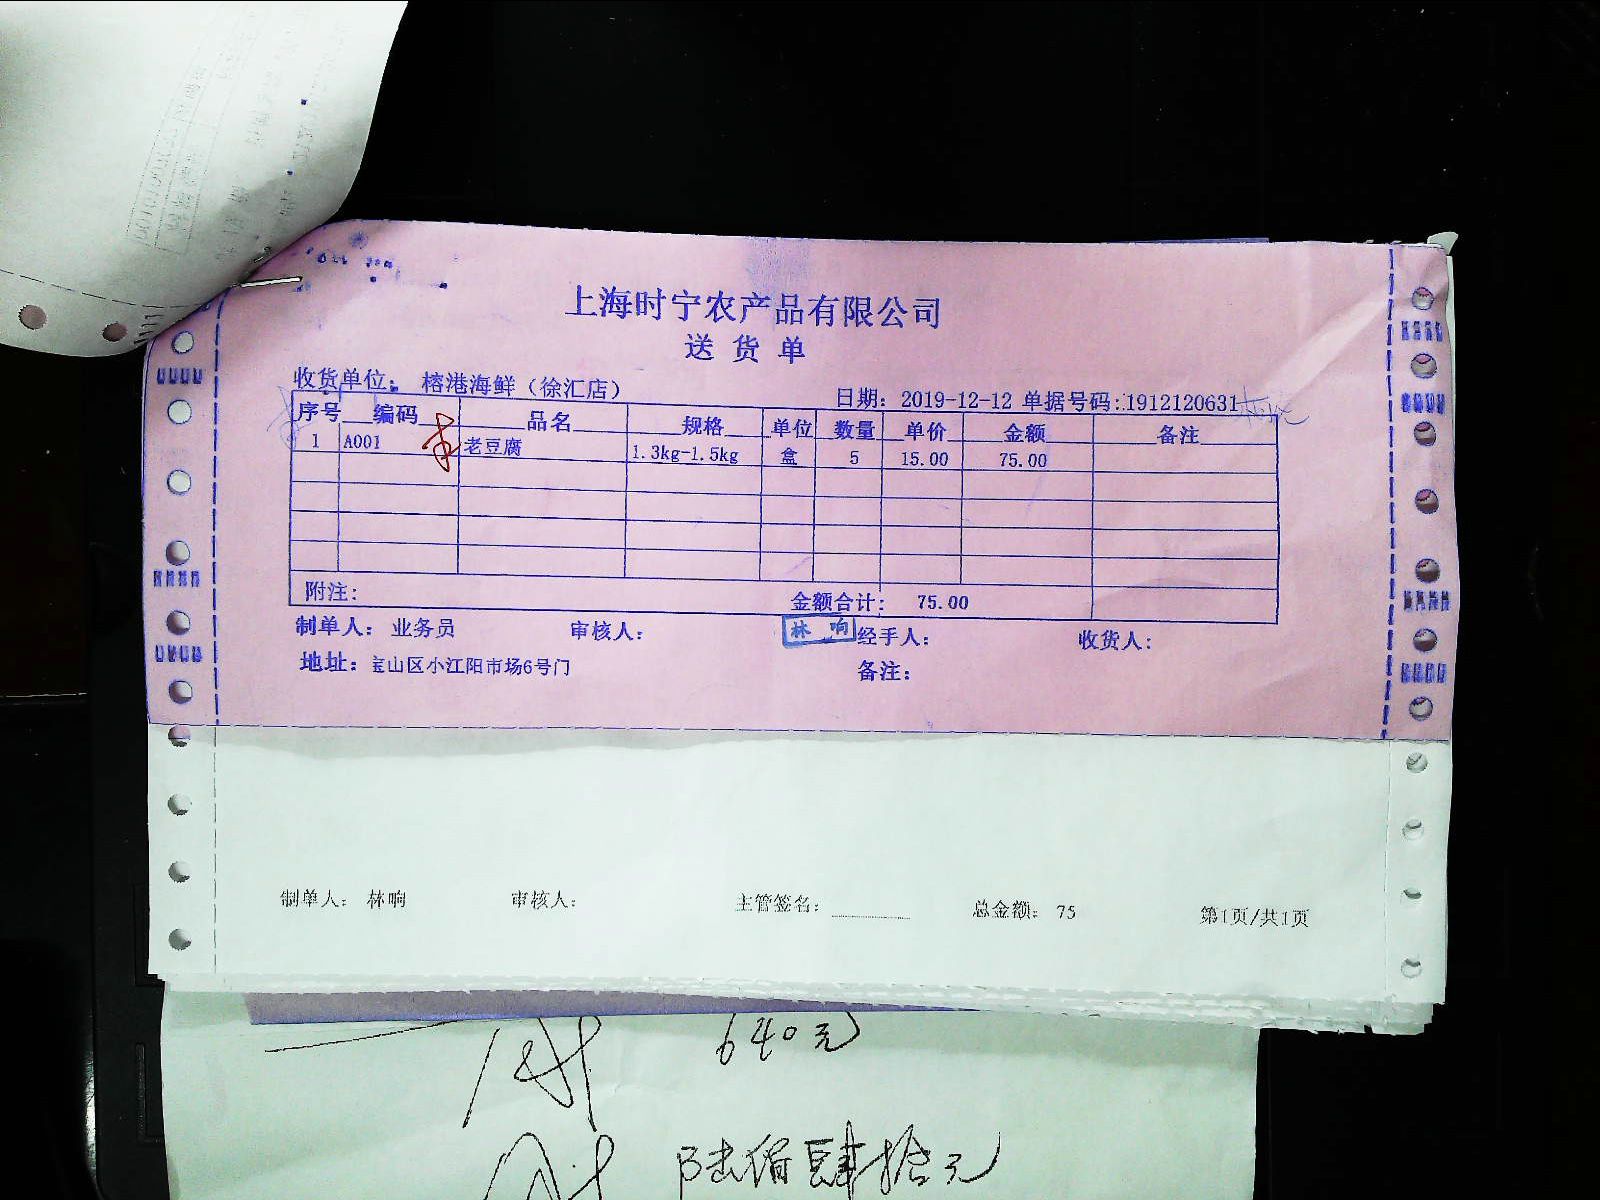 上海时宁农产品有限公司
送货单
收货单位： 榕港海鲜（徐汇店） 日期：2019-12-12 单据号码：1912120631
序号 编码 品名 规格 单位 数量 单价 金额 备注
1 A001 老豆腐 1.3kg-1.5kg 盒 5 15.00 75.00
附注： 金额合计： 75.00
制单人：业务员 审核人： 林响 经手人： 收货人：
地址：宝山区小江阳市场6号门 备注：
制单人： 林响 审核人： 主管签名： 总金额： 75 第1页/共1页
640元
陆佰肆拾元